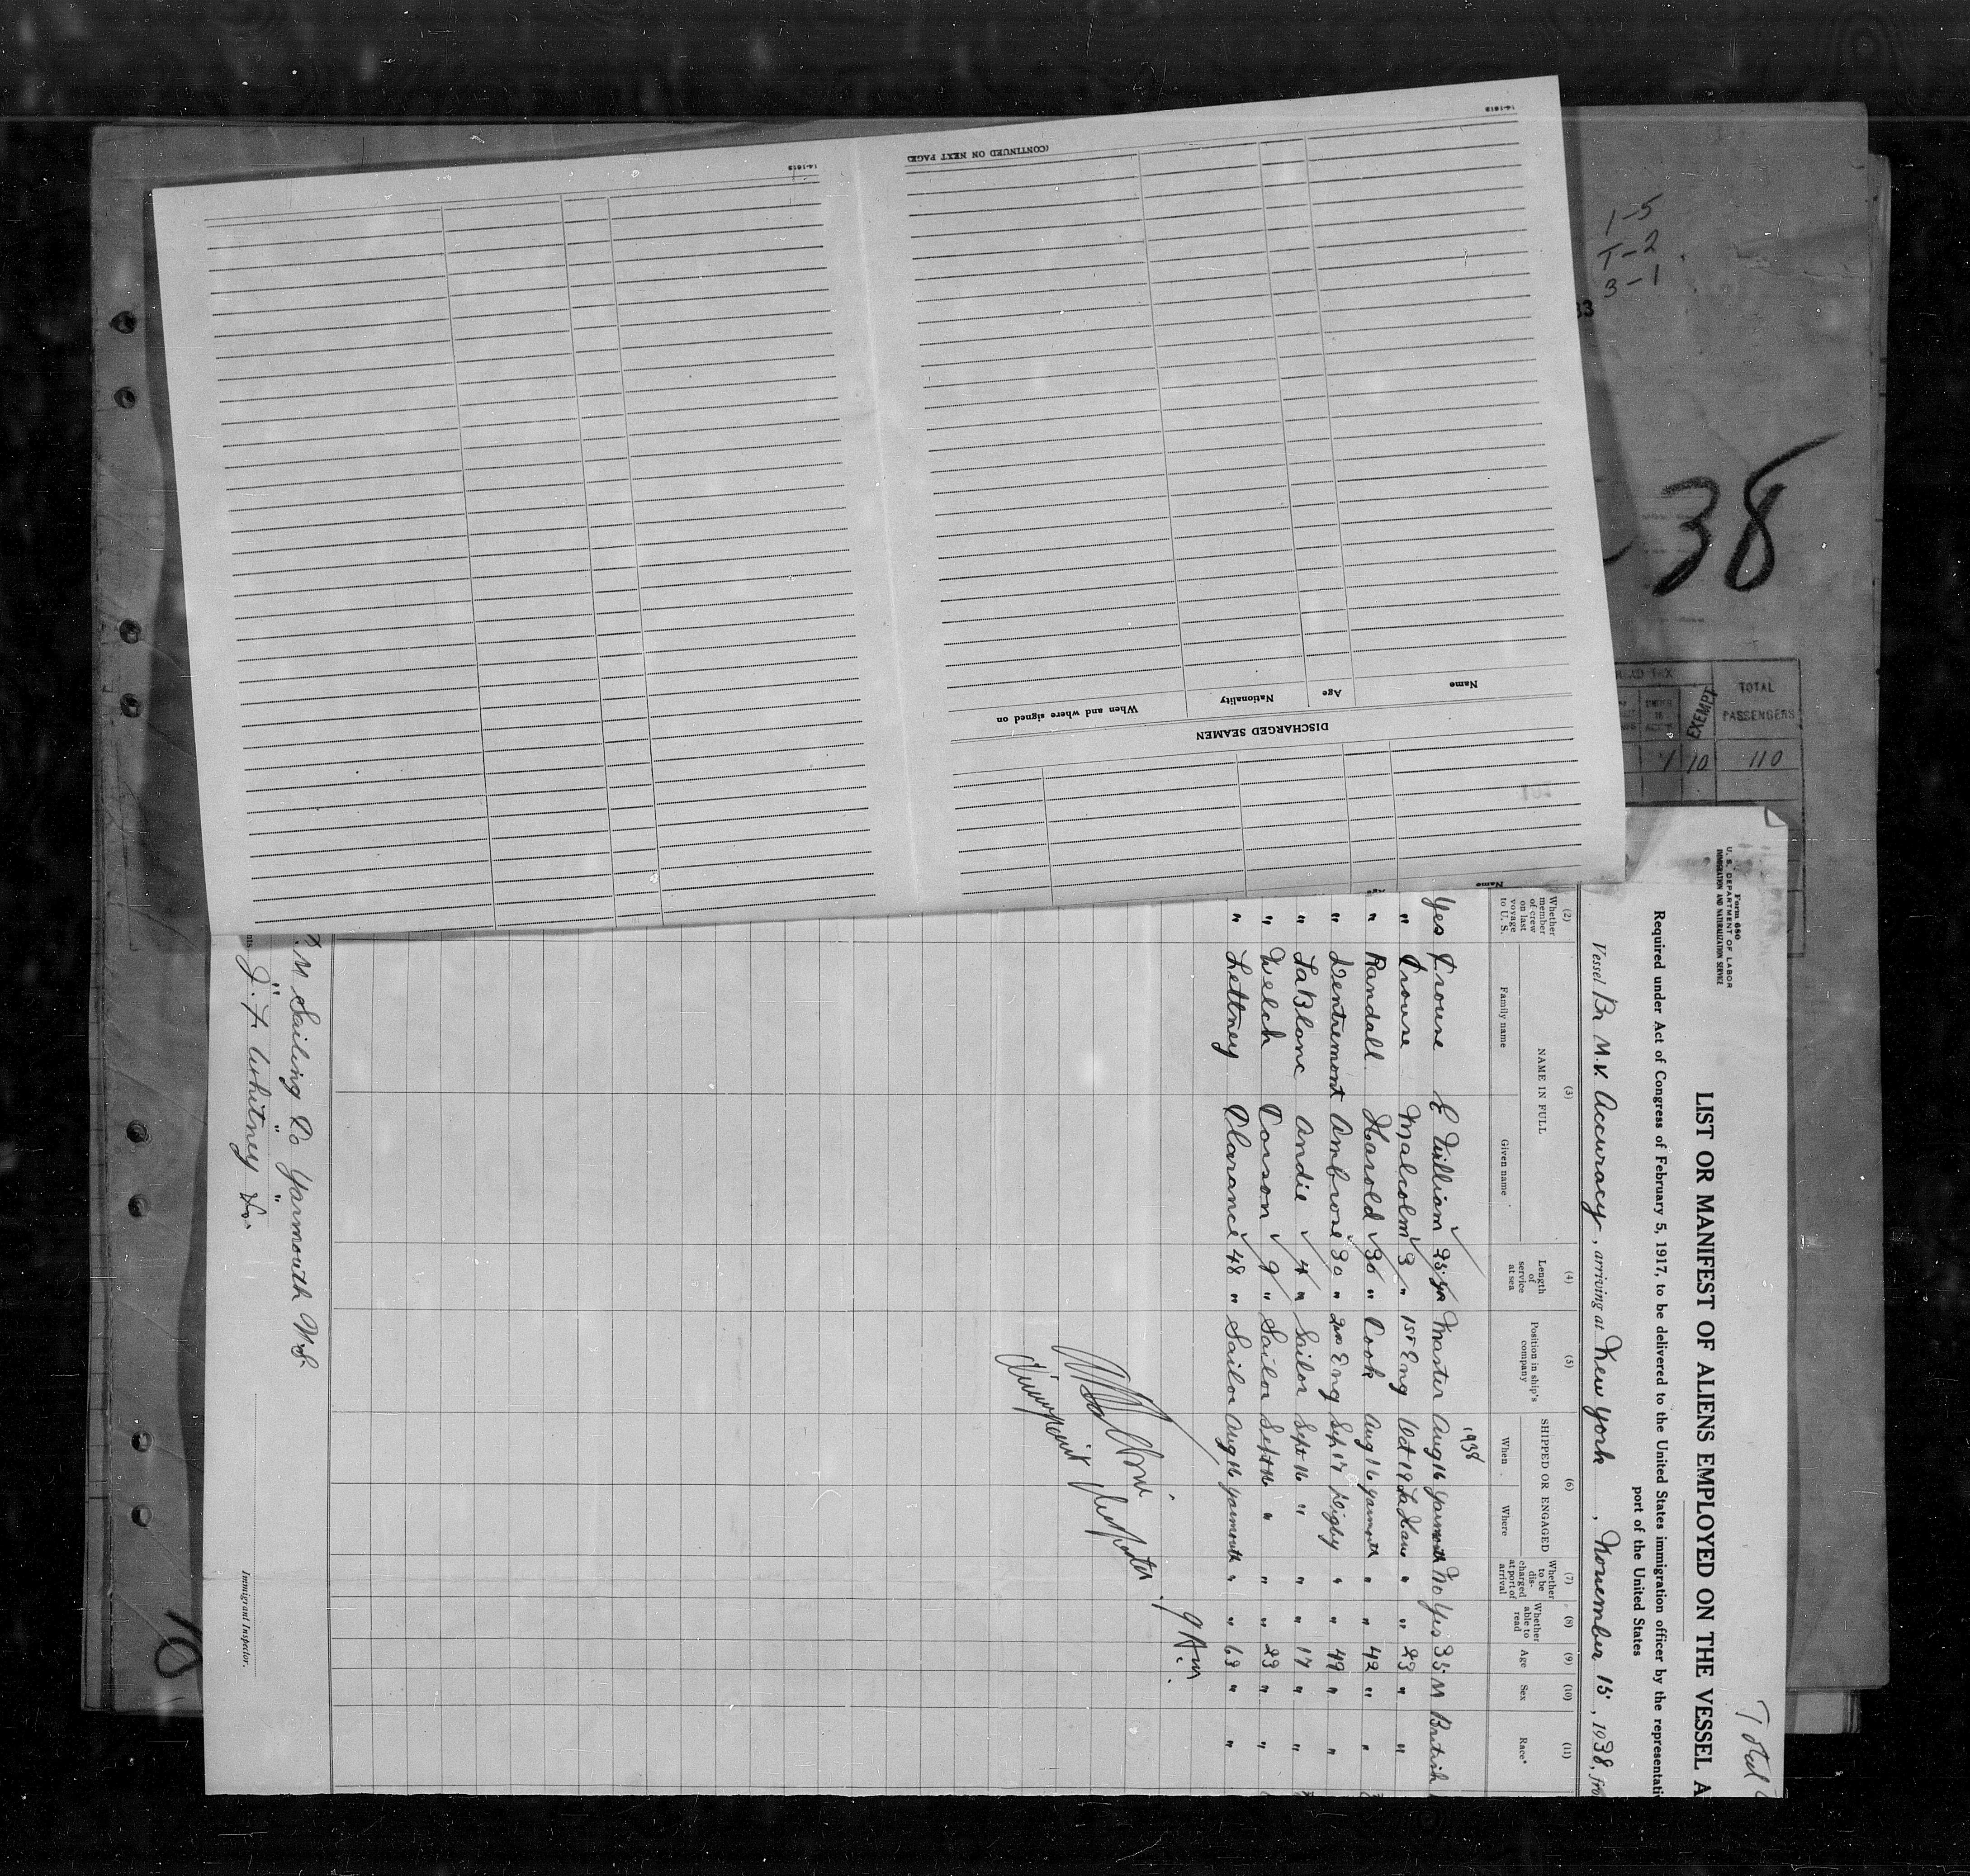 14-1613
(CONTINUED ON NEXT PAGE)
14-1613
DISCHARGED SEAMEN
Name Age Nationality When and where signed on
Name
1-5
1-2
3-1
33
38
TOTAL
PASSENGERS
EXEMPT
UNDER
16
1 10 110
Total
Form 680
U. S. DEPARTMENT OF LABOR
IMMIGRATION AND NATURALIZATION SERVICE
LIST OR MANIFEST OF ALIENS EMPLOYED ON THE VESSEL A
Required under Act of Congress of February 5, 1917, to be delivered to the United States immigration officer by the representati
port of the United States
Vessel Br. M.V. Accuracy, arriving at New York, November 15, 1938, fro
(2) (3) (4) (5) (6) (7) (8) (9) (10) (11)
Whether member of crew on last voyage to U. S. NAME IN FULL Family name Given name Length of service at sea Position in ship's company SHIPPED OR ENGAGED When Where Whether to be discharged at port of arrival Whether able to read Age Sex Race*
1938
Yes Crouse E William ✓ 25 yr Master Aug 16 Yarmouth No Yes 35 M British
" Crouse Malcolm ✓ 3 " 1st Eng Oct 19 La Have " " 23 " "
" Randall Harold ✓ 30 " Cook Aug 16 Yarmouth " " 42 " "
" Dentremont Ambrose ✓ 30 " 2nd Eng Sep 17 Digby " " 49 " "
" LaBlanc Andie ✓ 4 " Sailor Sept 16 " " " 17 " "
" Welch Corson ✓ 9 " Sailor Sept 16 " " " 23 " "
" Lettney Clarance ✓ 48 " Sailor Aug 16 Yarmouth " " 63 " "
9 Am.
Inspector
M Sailing Co Yarmouth N.S.
" " "
J. F. Whitney Co.
Immigrant Inspector.